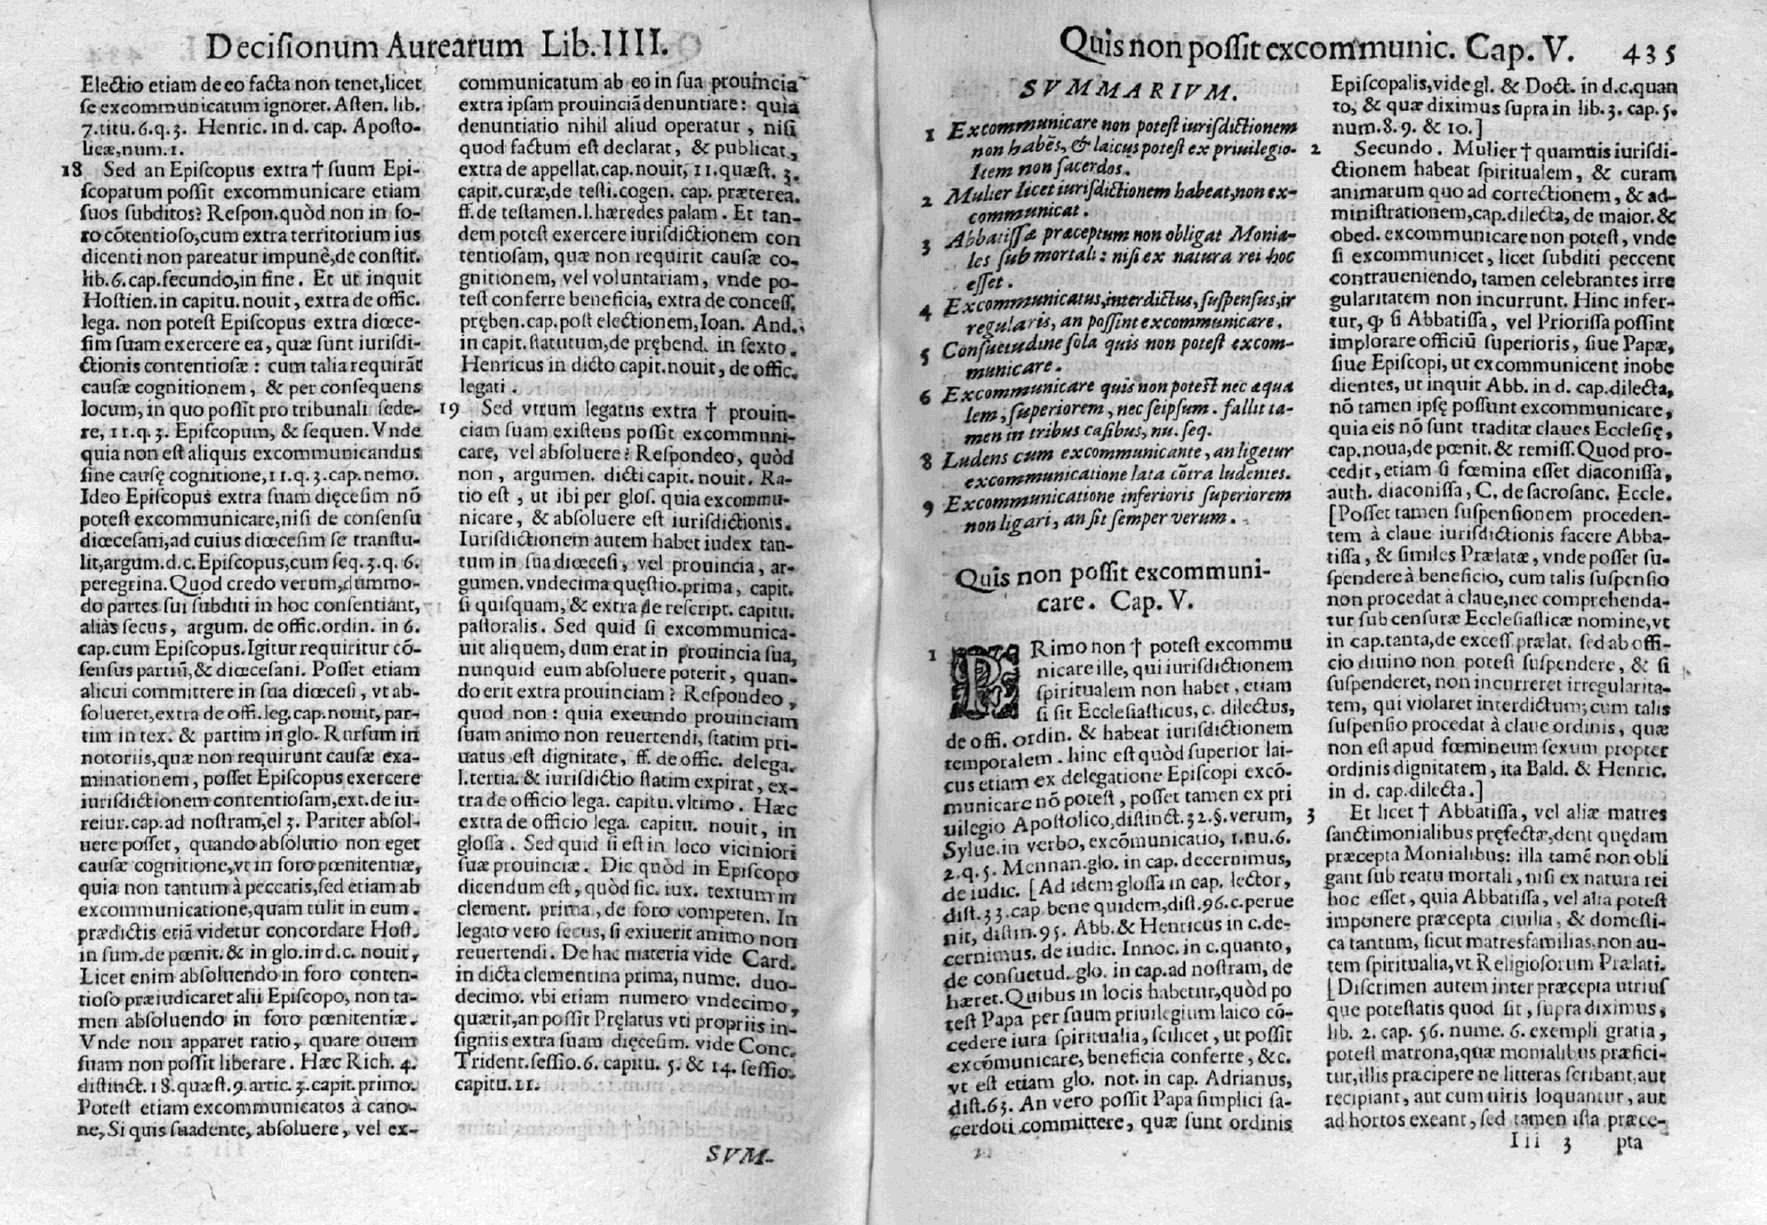 Decisionum Aurearum Lib. IIII.
Electio etiam de eo facta non tenet, licet
se excommunicatum ignoret. Asten. lib.
7. titu. 6. q. 3. Henric. in d. cap. Aposto-
licæ, num. 1.
18 Sed an Episcopus extra † suum Epi-
scopatum possit excommunicare etiam
suos subditos? Respon. quòd non in fo-
ro cōtentioso, cum extra territorium ius
dicenti non pareatur impunè, de constit.
lib. 6. cap. secundo, in fine. Et ut inquit
Hostien. in capitu. nouit, extra de offic.
lega. non potest Episcopus extra diœce-
sim suam exercere ea, quæ sunt iurisdi-
ctionis contentiosæ: cum talia requirāt
causæ cognitionem, & per consequens
locum, in quo possit pro tribunali sede-
re, 11. q. 3. Episcopum, & sequen. Vnde
quia non est aliquis excommunicandus
sine causę cognitione, 11. q. 3. cap. nemo.
Ideo Episcopus extra suam dięcesim nō
potest excommunicare, nisi de consensu
diœcesani, ad cuius diœcesim se transtu-
lit, argum. d. c. Episcopus, cum seq. 3. q. 6.
peregrina. Quod credo verum, dummo-
do partes sui subditi in hoc consentiant,
aliàs secus, argum. de offic. ordin. in 6.
cap. cum Episcopus. Igitur requiritur cō-
sensus partiū, & diœcesani. Posset etiam
alicui committere in sua diœcesi, vt ab-
solueret, extra de offi. leg. cap. nouit, par-
tim in tex. & partim in glo. Rursum in
notoriis, quæ non requirunt causæ exa-
minationem, posset Episcopus exercere
iurisdictionem contentiosam, ext. de iu-
reiur. cap. ad nostram, el 3. Pariter absol-
uere posset, quando absolutio non eget
causæ cognitione, vt in foro pœnitentiæ,
quia non tantum à peccatis, sed etiam ab
excommunicatione, quam tulit in eum.
prædictis etiā videtur concordare Host.
in sum. de pœnit. & in glo. in d. c. nouit,
Licet enim absoluendo in foro conten-
tioso præiudicaret alii Episcopo, non ta-
men absoluendo in foro pœnitentiæ.
Vnde non apparet ratio, quare ouem
suam non possit liberare. Hæc Rich. 4.
distinct. 18. quæst. 9. artic. 3. capit. primo.
Potest etiam excommunicatos à cano-
ne, Si quis suadente, absoluere, vel ex-
communicatum ab eo in sua prouincia
extra ipsam prouinciā denuntiare: quia
denuntiatio nihil aliud operatur, nisi
quod factum est declarat, & publicat,
extra de appellat. cap. nouit, 11. quæst. 3.
capit. curæ, de testi. cogen. cap. præterea.
ff. de testamen. l. hæredes palam. Et tan-
dem potest exercere iurisdictionem con
tentiosam, quæ non requirit causæ co-
gnitionem, vel voluntariam, vnde po-
test conferre beneficia, extra de concess.
pręben. cap. post electionem, Ioan. And.
in capit. statutum, de prębend. in sexto.
Henricus in dicto capit. nouit, de offic.
legati.
19 Sed vtrum legatus extra † prouin-
ciam suam existens possit excommuni-
care, vel absoluere? Respondeo, quòd
non, argumen. dicti capit. nouit. Ra-
tio est, ut ibi per glos. quia excommu-
nicare, & absoluere est iurisdictionis.
Iurisdictionem autem habet iudex tan-
tum in sua diœcesi, vel prouincia, ar-
gumen. vndecima quęstio. prima, capit.
si quisquam, & extra de rescript. capitu.
pastoralis. Sed quid si excommunica-
uit aliquem, dum erat in prouincia sua,
nunquid eum absoluere poterit, quan-
do erit extra prouinciam? Respondeo,
quod non: quia exeundo prouinciam
suam animo non reuertendi, statim pri-
uatus est dignitate, ff. de offic. delega.
l. tertia. & iurisdictio statim expirat, ex-
tra de officio lega. capitu. vltimo. Hæc
extra de officio lega. capitu. nouit, in
glossa. Sed quid si est in loco viciniori
suæ prouinciæ. Dic quòd in Episcopo
dicendum est, quòd sic. iux. textum in
clement. prima, de foro competen. In
legato vero secus, si exiuerit animo non
reuertendi. De hac materia vide Card.
in dicta clementina prima, nume. duo-
decimo. vbi etiam numero vndecimo,
quærit, an possit Pręlatus vti propriis in-
signiis extra suam dięcesim. vide Conc.
Trident. sessio. 6. capitu. 5. & 14. sessio.
capitu. 11.
SVM-
Quis non possit excommunic. Cap. V. 435
SVMMARIVM.
1 Excommunicare non potest iurisdictionem
non habēs, & laicus potest ex priuilegio.
Item non sacerdos.
2 Mulier licet iurisdictionem habeat, non ex-
communicat.
3 Abbatissæ præceptum non obligat Monia-
les sub mortali: nisi ex natura rei hoc
esset.
4 Excommunicatus, interdictus, suspensus, ir
regularis, an possint excommunicare.
5 Consuetudine sola quis non potest excom-
municare.
6 Excommunicare quis non potest nec æqua
lem, superiorem, nec seipsum. fallit ta-
men in tribus casibus, nu. seq.
8 Ludens cum excommunicante, an ligetur
excommunicatione lata cōtra ludentes.
9 Excommunicatione inferioris superiorem
non ligari, an sit semper verum.
Quis non possit excommuni-
care. Cap. V.
1 PRimo non † potest excommu
nicare ille, qui iurisdictionem
spiritualem non habet, etiam
si sit Ecclesiasticus, c. dilectus,
de offi. ordin. & habeat iurisdictionem
temporalem. hinc est quòd superior lai-
cus etiam ex delegatione Episcopi excō-
municare nō potest, posset tamen ex pri
uilegio Apostolico, distinct. 32. §. verum,
Sylue. in verbo, excōmunicatio, 1. nu. 6.
2. q. 5. Mennan. glo. in cap. decernimus,
de iudic. [Ad idem glossa in cap. lector,
dist. 33. cap bene quidem, dist. 96. c. perue
nit, distin. 95. Abb. & Henricus in c. de-
cernimus. de iudic. Innoc. in c. quanto,
de consuetud. glo. in cap. ad nostram, de
hæret. Quibus in locis habetur, quòd po
test Papa per suum priuilegium laico cō-
cedere iura spiritualia, scilicet, ut possit
excōmunicare, beneficia conferre, &c.
vt est etiam glo. not. in cap. Adrianus,
dist. 63. An vero possit Papa simplici sa-
cerdoti committere, quæ sunt ordinis
Episcopalis, vide gl. & Doct. in d. c. quan
to, & quæ diximus supra in lib. 3. cap. 5.
num. 8. 9. & 10.]
2 Secundo. Mulier † quamuis iurisdi-
ctionem habeat spiritualem, & curam
animarum quo ad correctionem, & ad-
ministrationem, cap. dilecta, de maior. &
obed. excommunicare non potest, vnde
si excommunicet, licet subditi peccent
contraueniendo, tamen celebrantes irre
gularitatem non incurrunt. Hinc infer-
tur, ꝙ si Abbatissa, vel Priorissa possint
implorare officiū superioris, siue Papæ,
siue Episcopi, ut excommunicent inobe
dientes, ut inquit Abb. in d. cap. dilecta,
nō tamen ipsę possunt excommunicare,
quia eis nō sunt traditæ claues Ecclesię,
cap. noua, de pœnit. & remiss. Quod pro-
cedit, etiam si fœmina esset diaconissa,
auth. diaconissa, C. de sacrosanc. Eccle.
[Posset tamen suspensionem proceden-
tem à claue iurisdictionis facere Abba-
tissa, & similes Prælatæ, vnde posset su-
spendere à beneficio, cum talis suspensio
non procedat à claue, nec comprehenda-
tur sub censuræ Ecclesiasticæ nomine, vt
in cap. tanta, de excess. prælat. sed ab offi-
cio diuino non potest suspendere, & si
suspenderet, non incurreret irregularita-
tem, qui violaret interdictum; cum talis
suspensio procedat à claue ordinis, quæ
non est apud fœmineum sexum propter
ordinis dignitatem, ita Bald. & Henric.
in d. cap. dilecta.]
3 Et licet † Abbatissa, vel aliæ matres
sanctimonialibus pręfectæ, dent quędam
præcepta Monialibus: illa tamē non obli
gant sub reatu mortali, nisi ex natura rei
hoc esset, quia Abbatissa, vel alia potest
imponere præcepta ciuilia, & domesti-
ca tantum, sicut matresfamilias, non au-
tem spiritualia, vt Religiosorum Prælati.
[Discrimen autem inter præcepta utrius
que potestatis quod sit, supra diximus,
lib. 2. cap. 56. nume. 6. exempli gratia,
potest matrona, quæ monialibus præfici-
tur, illis præcipere ne litteras scribant, aut
recipiant, aut cum uiris loquantur, aut
ad hortos exeant, sed tamen ista præce-
Iii 3 pta